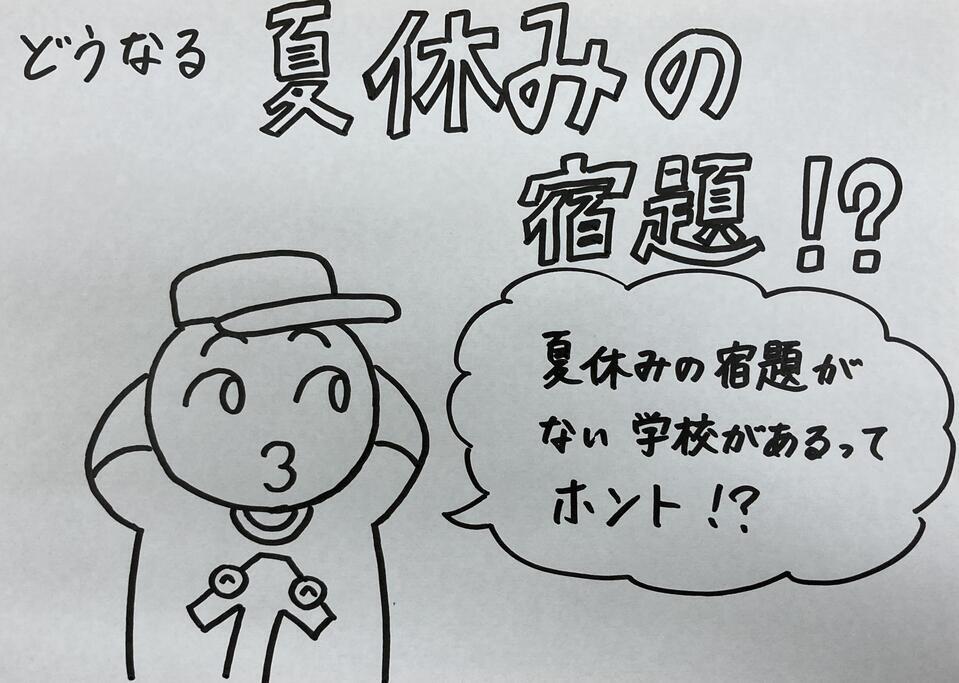 どうなる 夏休みの
宿題!?
夏休みの宿題が
ない学校があるって
ホント!?